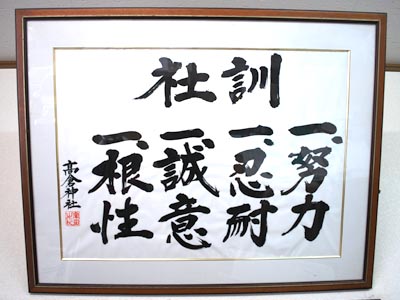 社訓
一、努力
一、忍耐
一、誠意
一、根性
高倉神社